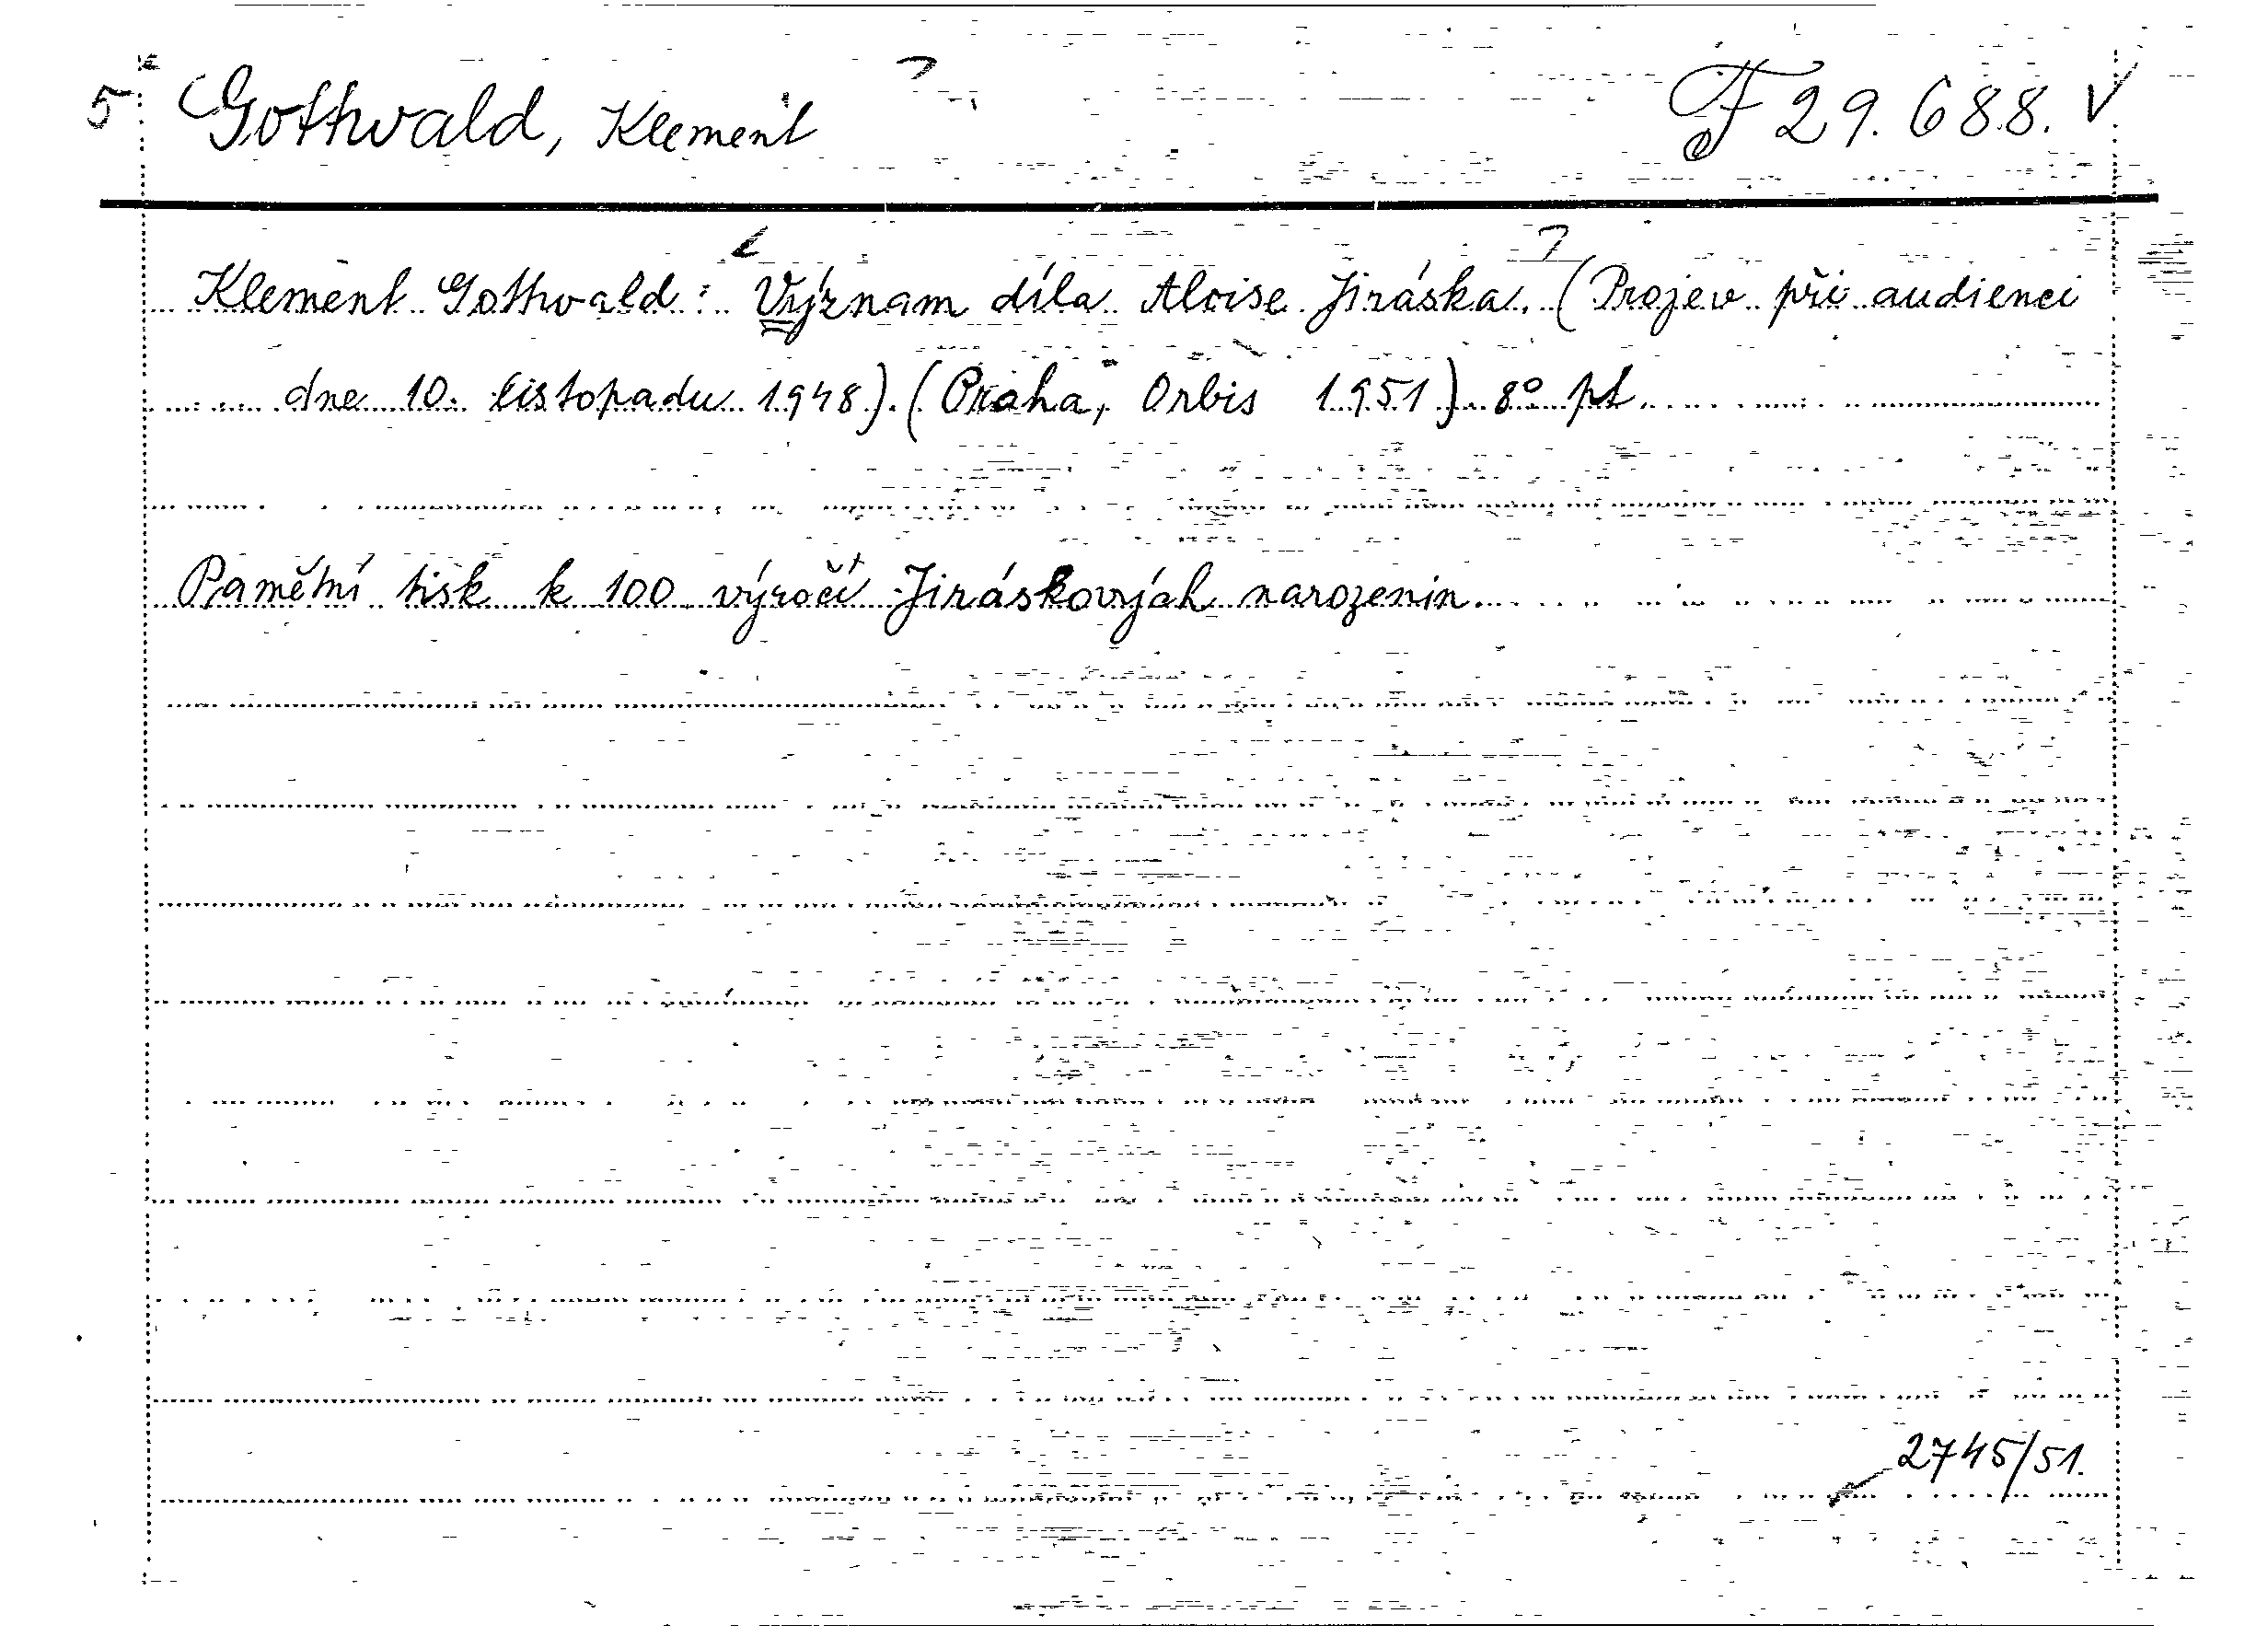 5 Gottwald, Klement F 29.688.
Klement Gottwald: Význam díla Aloise Jiráska. (Projev při audienci
dne 10. listopadu 1948). (Praha, Orbis 1951) 8° pt
Pamětní tisk k 100 výročí Jiráskových narozenin.
2745/51.